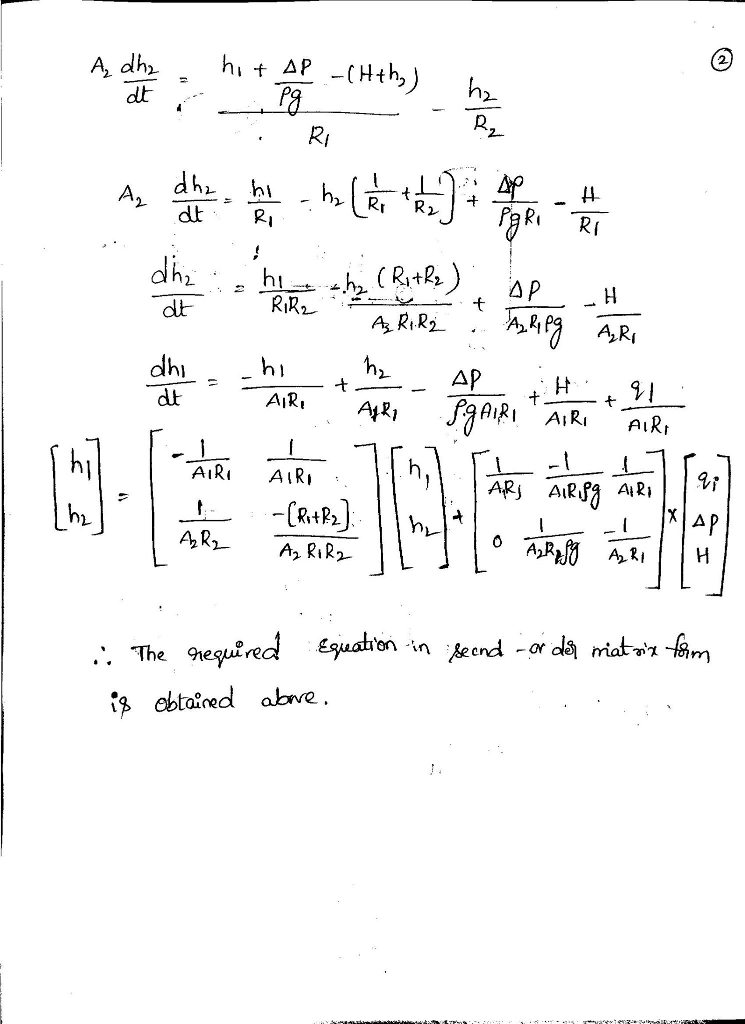 ②
A₂ dh₂/dt = (h₁ + ΔP/ρg - (H+h₂))/R₁ - h₂/R₂
A₂ dh₂/dt = h₁/R₁ - h₂ (1/R₁ + 1/R₂) + ΔP/ρgR₁ - H/R₁
dh₂/dt = h₁/R₁R₂ - h₂ (R₁+R₂)/A₂R₁R₂ + ΔP/A₂R₁ρg - H/A₂R₁
dh₁/dt = -h₁/A₁R₁ + h₂/A₁R₁ - ΔP/ρgA₁R₁ + H/A₁R₁ + q1/A₁R₁
[h₁; h₂] = [-1/A₁R₁ 1/A₁R₁; 1/A₂R₂ -(R₁+R₂)/A₂R₁R₂] [h₁; h₂] + [1/A₁R₁ -1/A₁R₁ρg 1/A₁R₁; 0 1/A₂R₂ρg -1/A₂R₁] × [qi; ΔP; H]
∴ The required Equation in secnd-order matrix form
is obtained above.